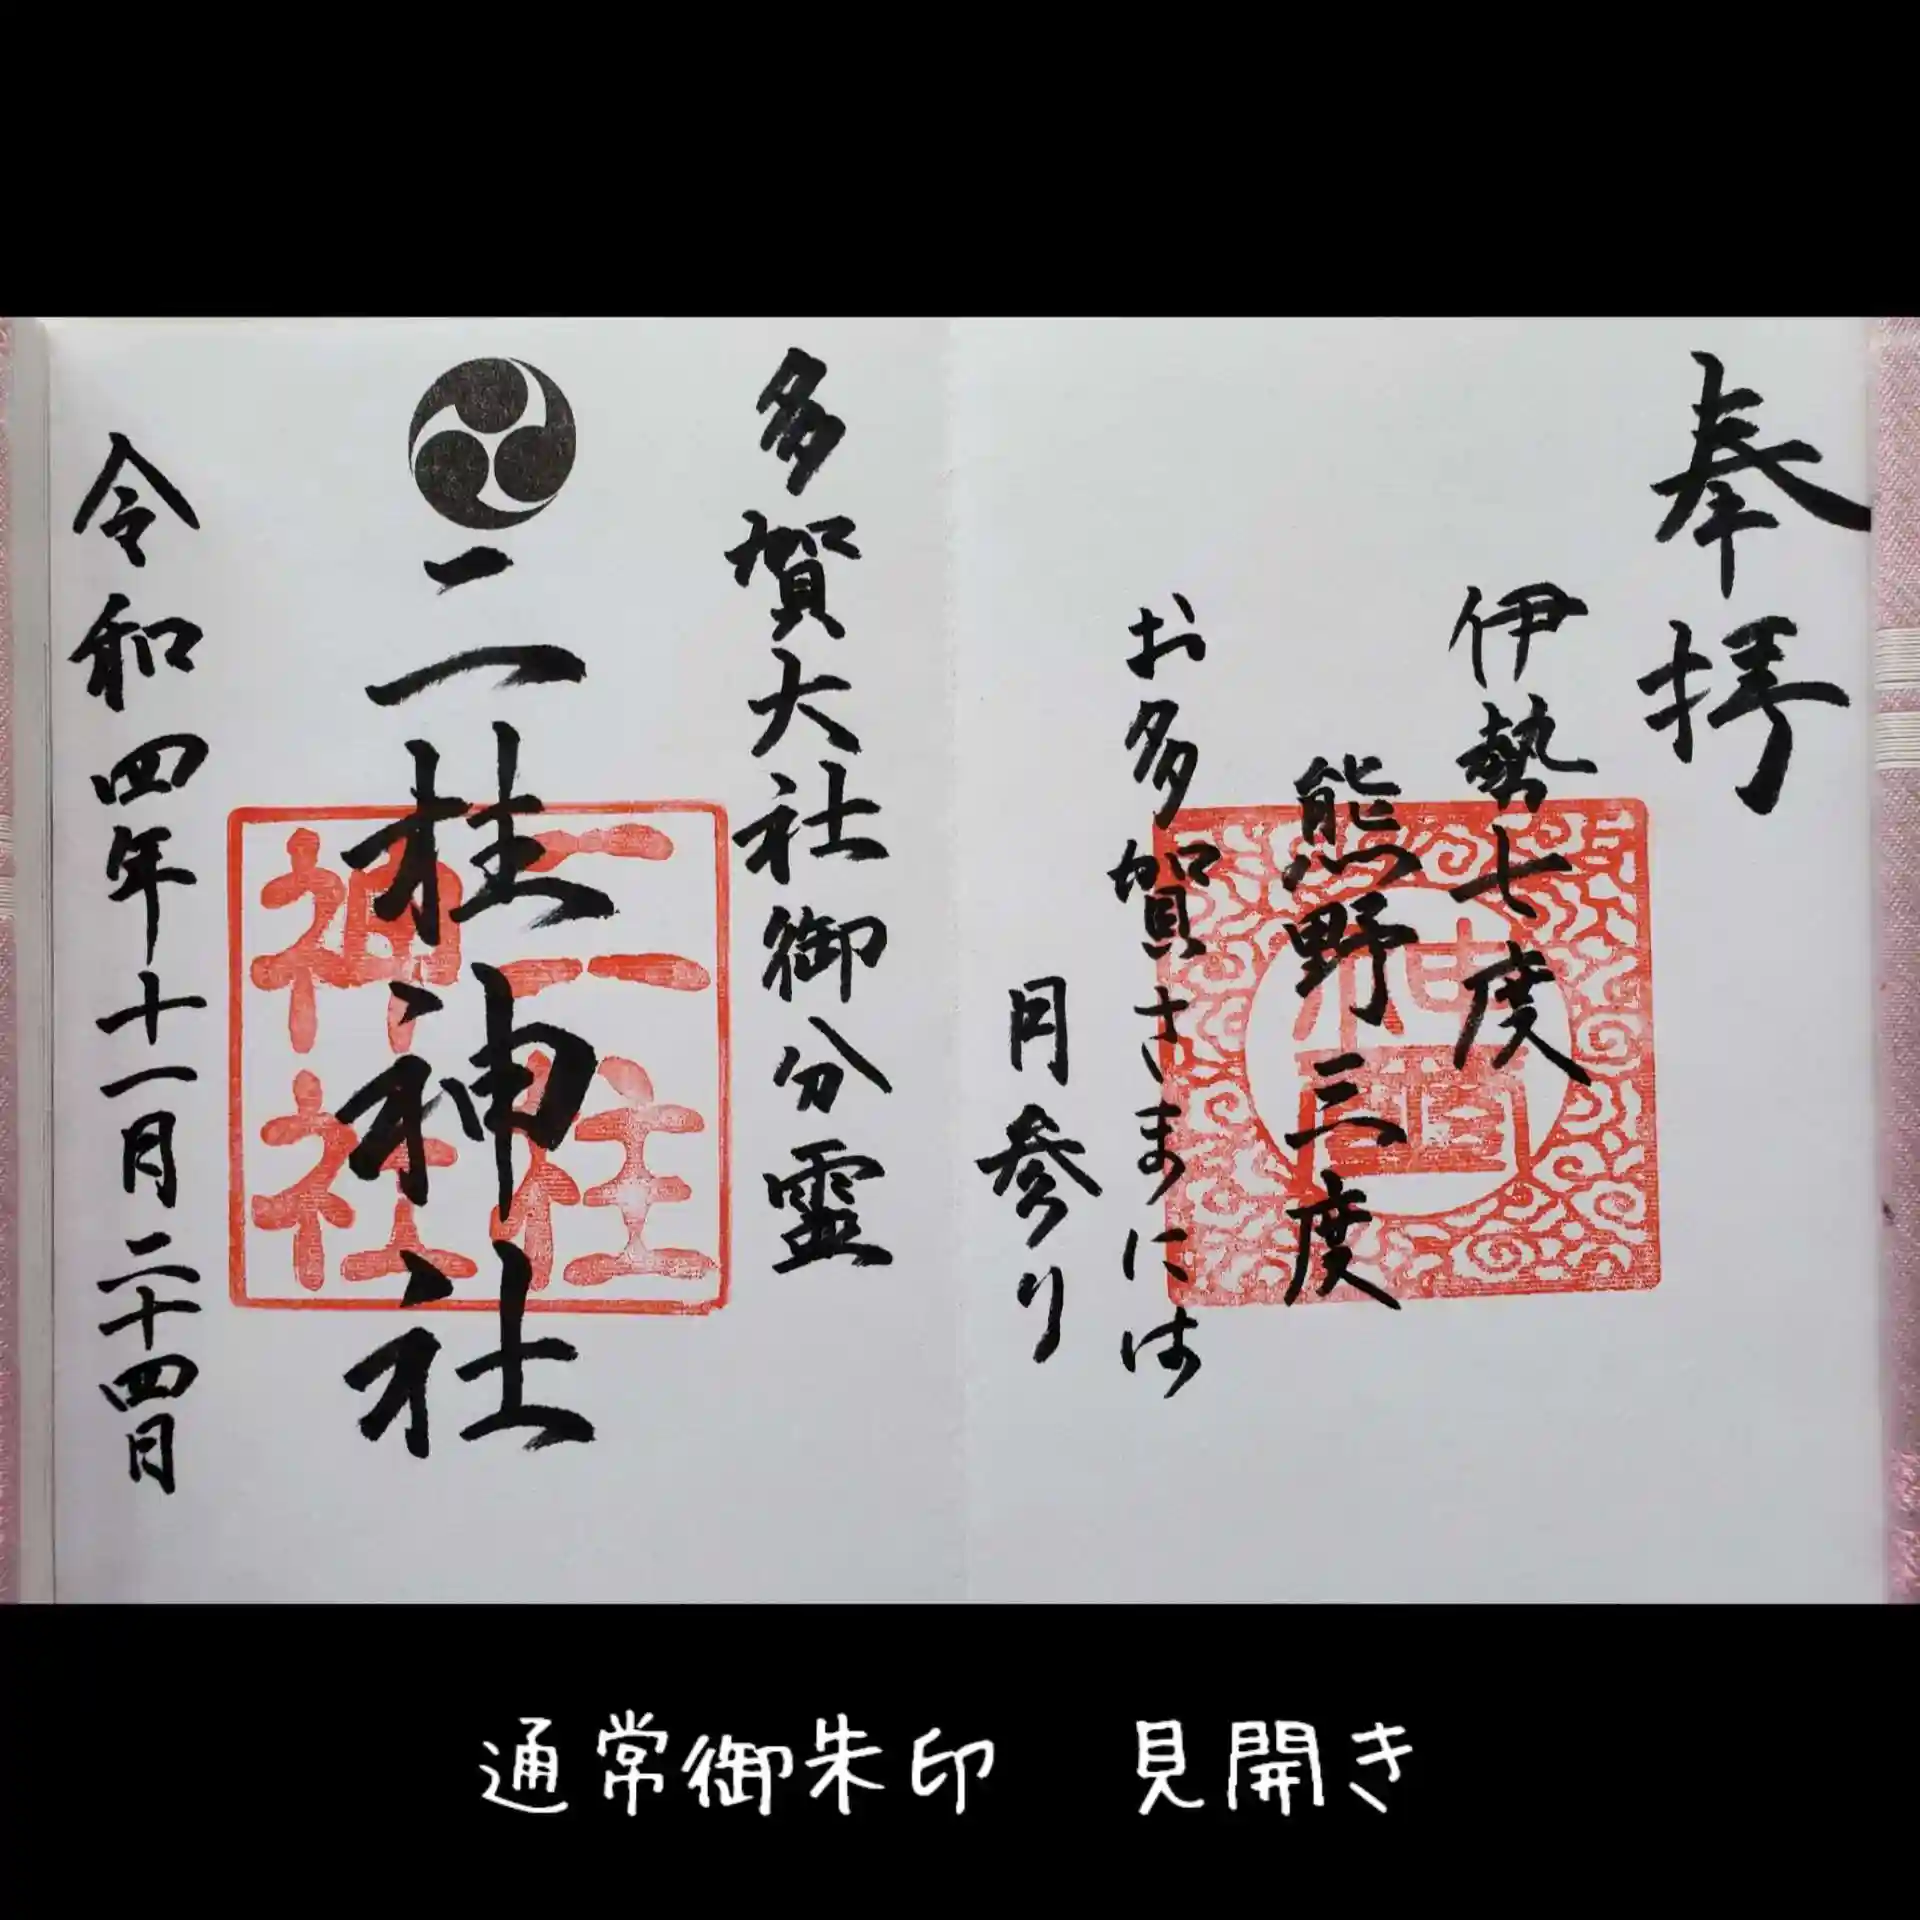 奉拝
伊勢七度
熊野三度
お多賀さまには
月参り
多賀大社御分霊
二柱神社
令和四年十一月二十四日
二柱
神社
通常御朱印　見開き